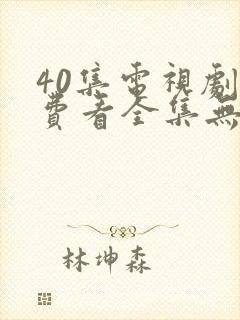 40集電視劇
費看全集無
林坤森